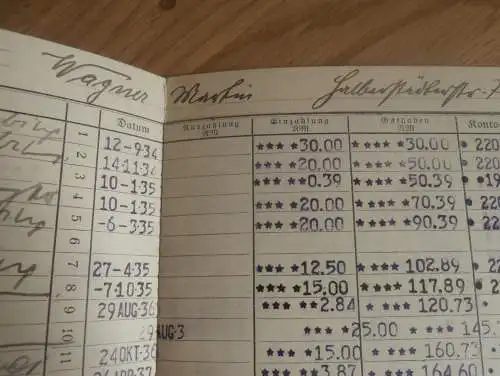 Wagner Martin Halberstädterstr.
Datum Auszahlung RM Einzahlung RM Guthaben RM Konto-
1 12-9-34 ***30.00 ****30.00 • 220
2 14-11-34 ***20.00 ****50.00 • 220
3 10-1-35 ****0.39 ****50.39 • 19
4 10-1-35 ***20.00 ****70.39 • 220
5 -6-3-35 ***20.00 ****90.39 • 220
6
7 27-4-35 ***12.50 ***102.89 • 220
8 -7-10-35 ***15.00 ***117.89 • 220
9 29AUG·36 ****2.84 ***120.73
10 29AUG·3 ***25.00 ***145.
11 24OKT·36 ***15.00 ***160.73
****3.87 ***164.60